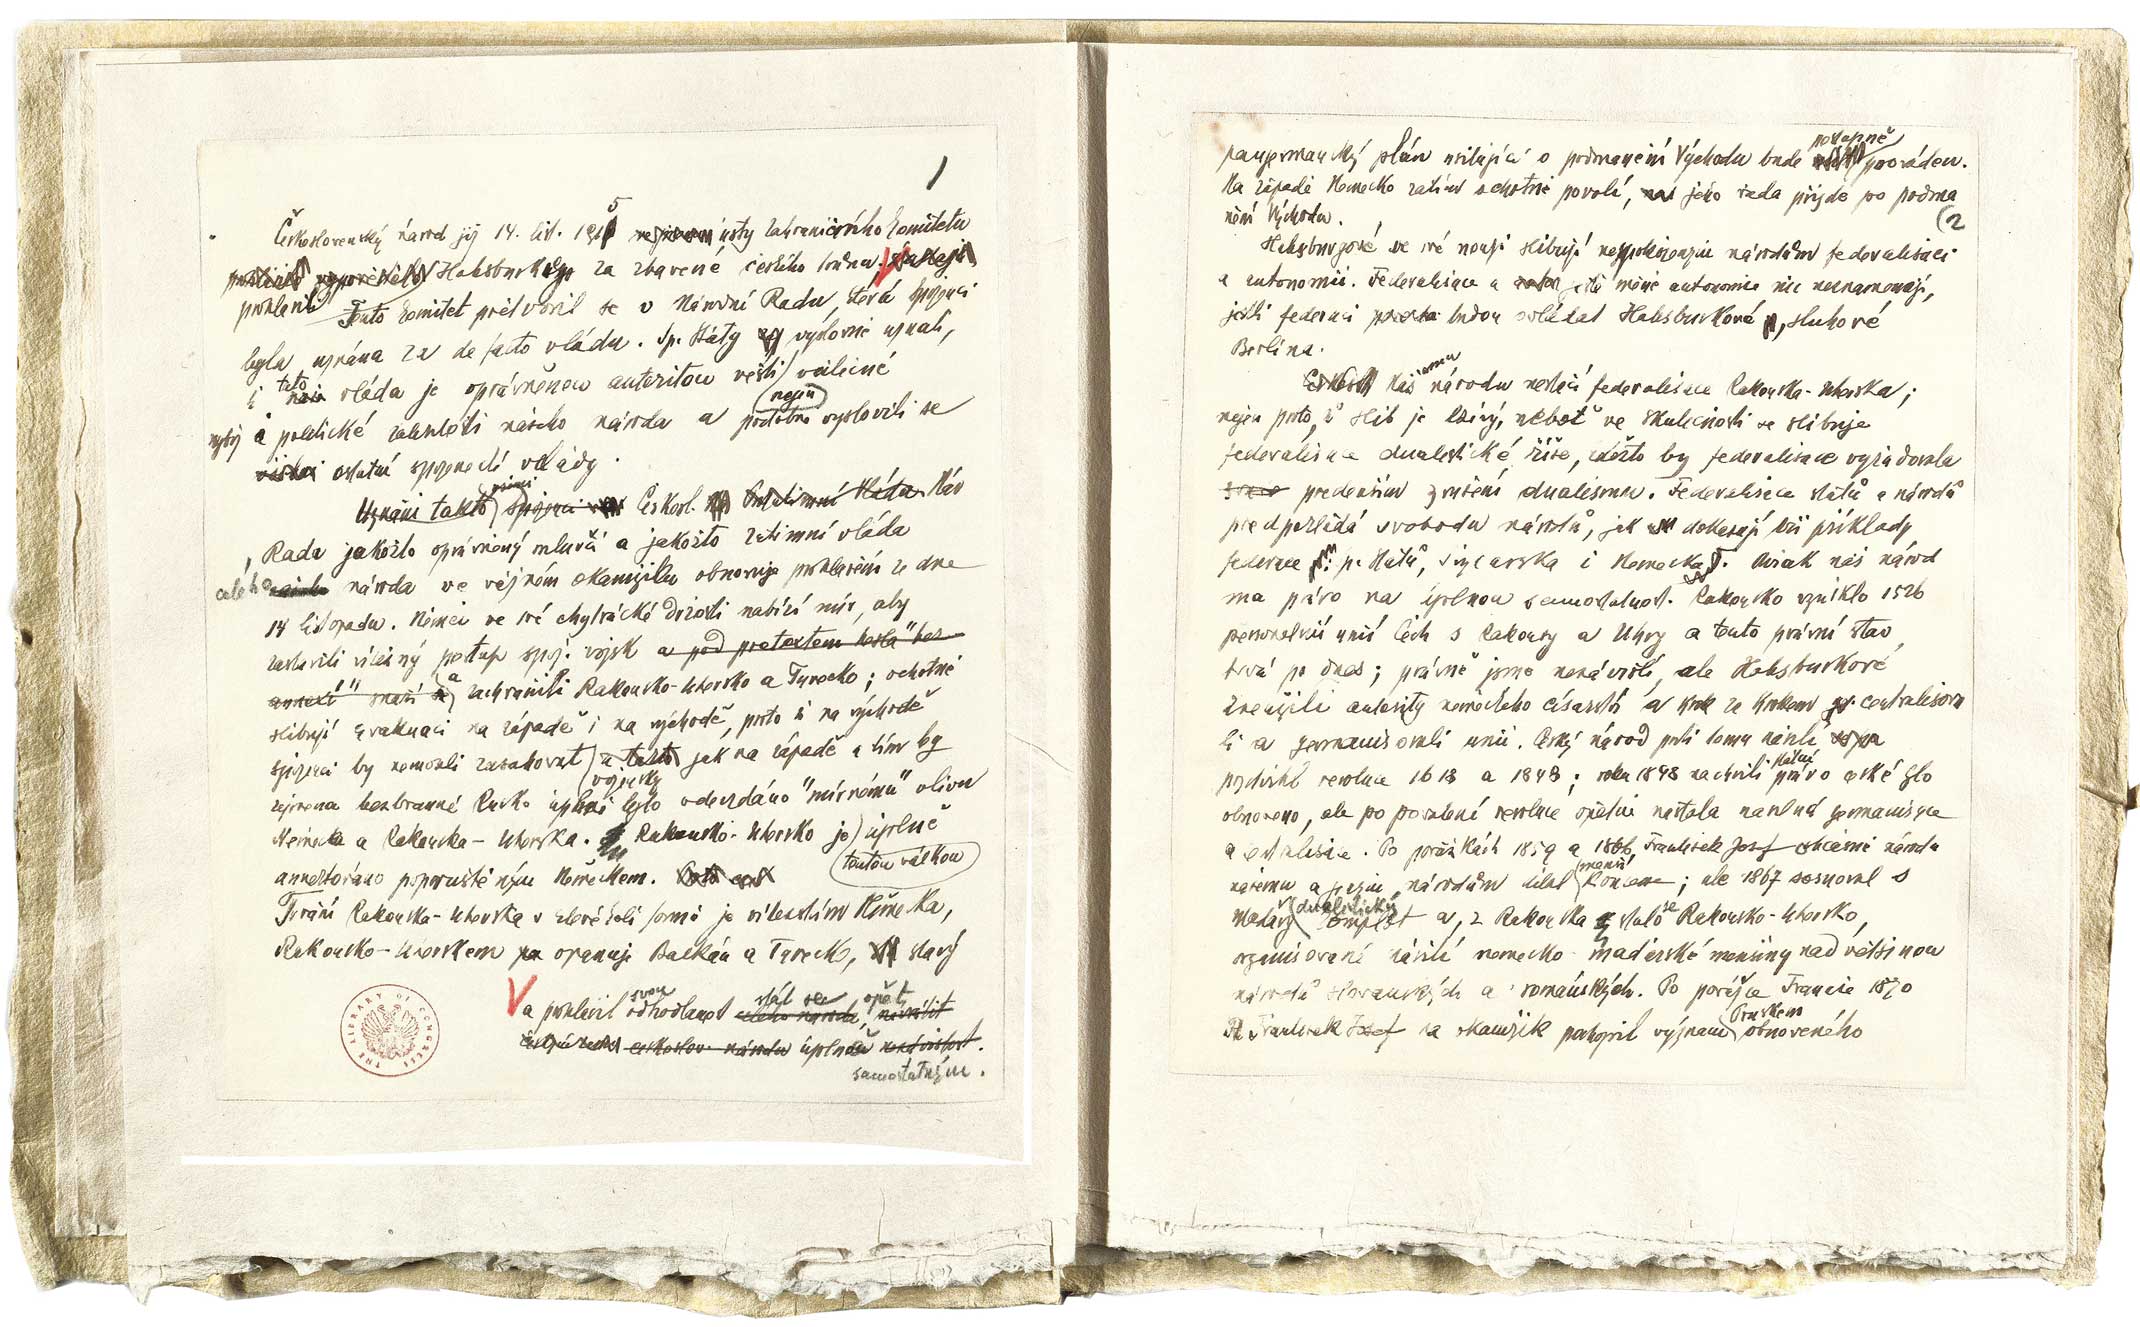 1
5
Československý národ již 14. list. 191 ústy zahraničního komitetu
Habsburky za zbavené českého trůnu.
prohlásil Tento komitet přetvořil se v Národní Radu, která spojenci
byla uznána za de facto vládu. Sp. Státy výslovně uznali,
tato
i vláda je oprávněnou autoritou vésti válečné
nejen
nýbrž i politické záležitosti našeho národa a podobně vyslovili se
ostatní spojenecké vlády.
Uznání takto spojenci Českosl. Prozatimní Vláda Nár
Rada jakožto oprávněný mluvčí a jakožto zatimní vláda
celého národa ve vážném okamžiku obnovuje prohlášení ze dne
14 listopadu. Němci ve své chytrácké drzosti nabízí mír, aby
zastavili vítězný postup spoj. vojsk a pod pretextem hesla "bez
annexí" snaží a zachránili Rakousko-Uhersko a Turecko; ochotně
slibují evakuaci na západě i na východě, proto že na východě
spojenci by nemohli zasahovat jak na západě a tím by
vojensky
zejména bezbranné Rusko úplně bylo odevzdáno "mírnému" vlivu
Německa a Rakouska-Uherska. Rakousko-Uhersko je úplně
touto válkou
annektováno popruštěným Německem.
Trvání Rakouska-Uherska v kterékoli formě je vítězstvím Německa,
Rakousko-Uherskem opanuje Balkán a Turecko, starý
svou stát se opět
a prohlásil odhodlanost celého národa,
českoslov. národu úplně nezávislost.
samostatným.
THE LIBRARY OF CONGRESS
postupně
pangermanský plán usilující o podmanění Východu bude prováděn.
Na západě Německo zatím ochotně povolí, jeho řada přijde po podma
nění Východu.
2
Habsburgové ve své nouzi slibují nespokojeným národům federalisaci
a autonomii. Federalisace a ještě méně autonomie nic neznamenají,
jestli federaci budou ovládat Habsburkové, sluhové
Berlína.
Našemu národu nestačí federalisace Rakouska-Uherska;
nejen proto, že slib je lživý, neboť ve skutečnosti se slibuje
federalisace dualistické říše, kdežto by federalisace vyžadovala
především zrušení dualismu. Federalisace států a národů
předpokládá svobodu národů, jak dokazují vší příklady
federace Sp. Států, Švýcarska i Německa. Avšak náš národ
má právo na úplnou samostatnost. Rakousko vzniklo 1526
personelní unií Čech s Rakousy a Uhry a tento právní stav
trvá po dnes; právně jsme nezávislí, ale Habsburkové
zneužili autority německého císařství a krok za krokem centralisova
li a germanisovali unii. Český národ proti tomu násilí
státní
pozdvihl revoluce 1618 a 1848; roku 1848 na chvíli právo české bylo
obnoveno, ale po poražení revoluce opětně nastala násilná germanisace
a centralisace. Po porážkách 1859 a 1866 František Josef občasně národu
menší
našemu a jiným národům dělal koncese; ale 1867 osnoval s
dualistický
Maďary komplot a, z Rakouska stalo se Rakousko-Uhersko,
organisované násilí německo-maďarské menšiny nad většinou
národů slovanských a románských. Po porážce Francie 1870
Pruskem
František Josef na okamžik pochopil význam obnoveného